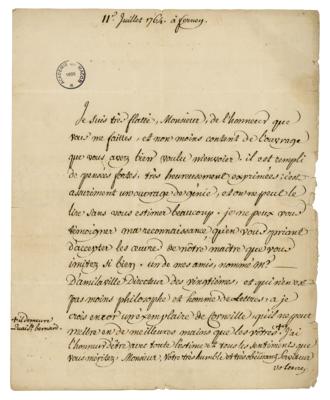 11e. Juillet 1764 à ferney
ACADEMIE DE MACON
Je suis tres flatté, Monsieur, de l'honneur que
vous me faittes, et non moins content de l'ouvrage
que vous avez bien voulu m'envoier. il est rempli
de pensées fortes, très heureusement exprimées; c'est
assurément un ouvrage de génie, et on ne peut le
lire sans vous estimer beaucoup. je ne peux vous
témoigner ma reconnaissance qu'en vous priant
d'accepter les œuvre de nôtre maître que vous
imitez si bien. un de mes amis, nommé Mr.
D'amilaville Directeur des vingtièmes, et qui n'en est
pas moins philosophe et homme de Lettres, a je
crois encor un exemplaire de Corneille qu'il ne peut
mettre en de meilleures mains que les vôtres. +. j'ai
+ il demeure
quai St. bernard.
l'honneur d'être avec toute l'estime et tous les sentiments que
vous méritez, Monsieur, Votre très humble et très obéissant serviteur
voltaire